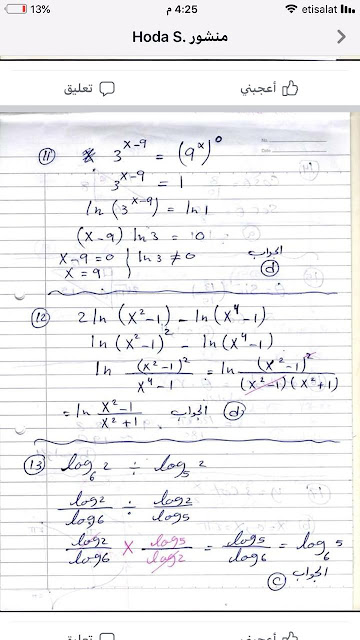 13%
4:25 م
etisalat
منشور .Hoda S
أعجبني
تعليق
11 3^(x-9) = (9^x)^0
3^(x-9) = 1
ln (3^(x-9)) = ln 1
(x-9) ln 3 = 0
x-9=0 | ln 3 ≠ 0
x = 9
الجواب
d
12 2 ln (x²-1) - ln (x⁴-1)
ln (x²-1)² - ln (x⁴-1)
ln (x²-1)²/(x⁴-1) = ln (x²-1)²/((x²-1)(x²+1))
= ln (x²-1)/(x²+1) الجواب d
13 log₆2 ÷ log₅2
log2/log6 ÷ log2/log5
log2/log6 × log5/log2 = log5/log6 = log₆5
الجواب c
أعجبني
تعليق